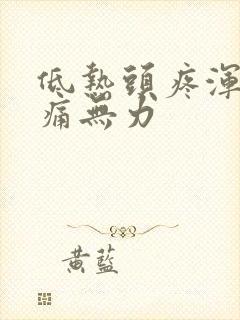 低熱頭疼渾
痛無力
黃藍